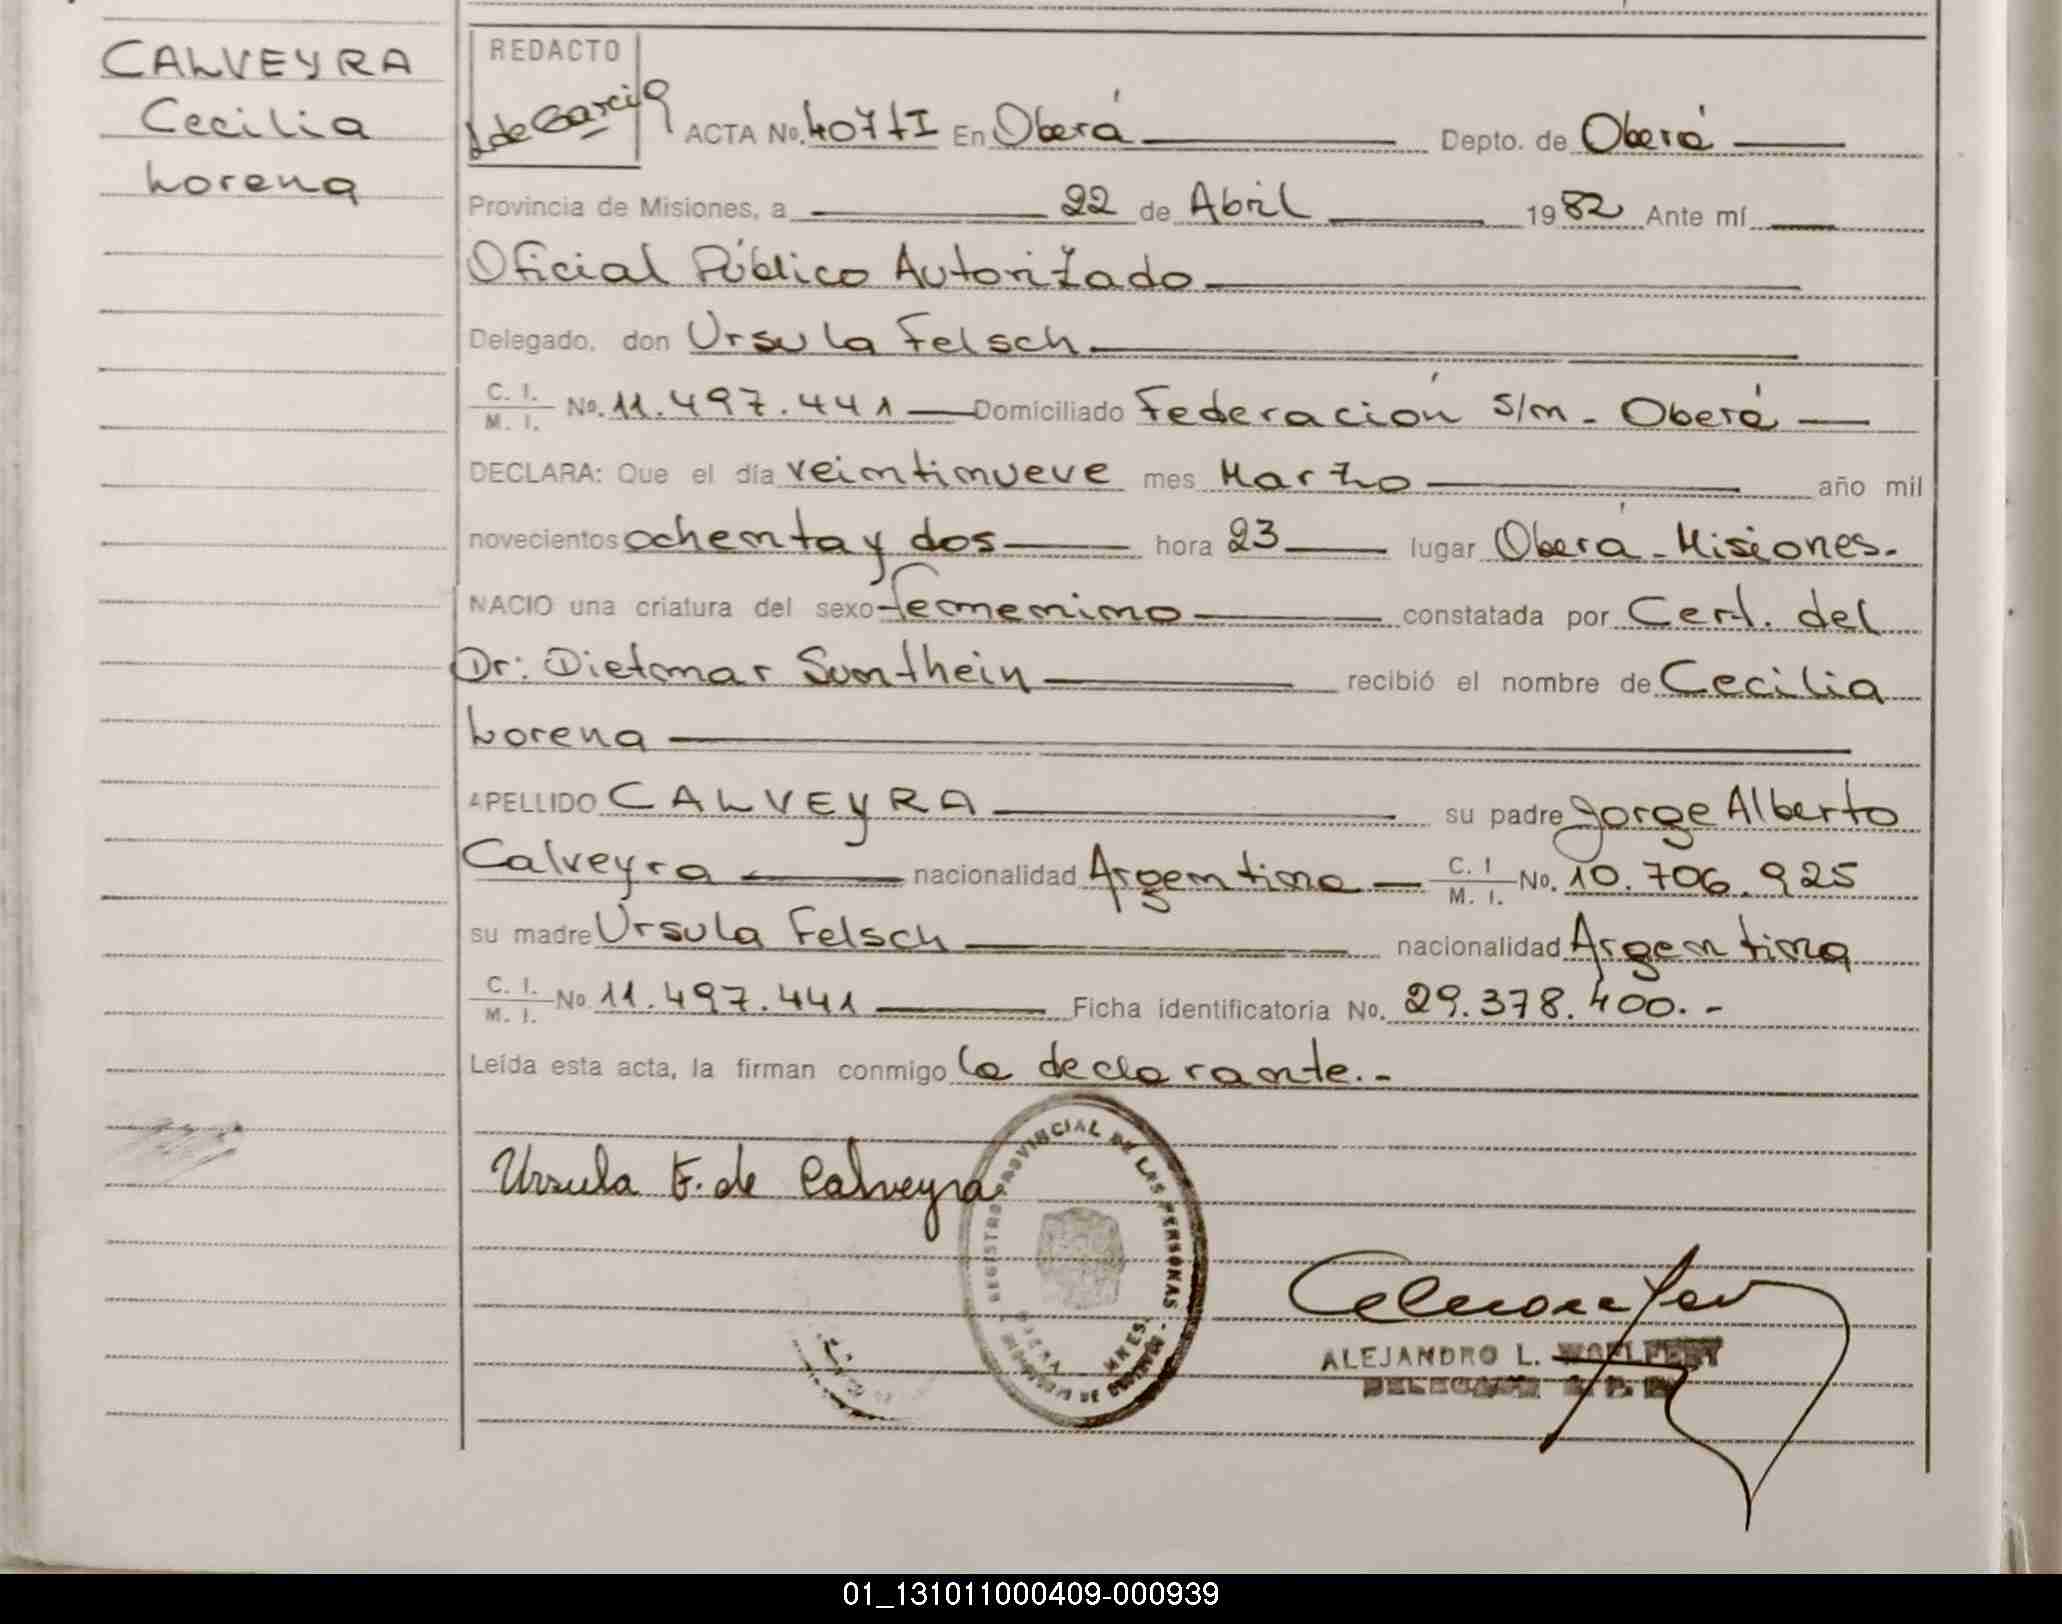 CALVEYRA
Cecilia
Lorena
REDACTO
de Garcia
ACTA No. 407 tI En Oberá Depto. de Oberá
Provincia de Misiones, a 22 de Abril 1982 Ante mí
Oficial Público Autorizado
Delegado, don Ursula Felsch
C. I. / M. I. No. 11.497.441 Domiciliado Federación s/n - Oberá
DECLARA: Que el día veintinueve mes Marzo año mil
novecientos ochenta y dos hora 23 lugar Oberá - Misiones.
NACIO una criatura del sexo femenino constatada por Cert. del
Dr: Dietmar Sonthein recibió el nombre de Cecilia
Lorena
APELLIDO CALVEYRA su padre Jorge Alberto
Calveyra nacionalidad Argentina C. I. / M. I. No. 10.706.925
su madre Ursula Felsch nacionalidad Argentina
C. I. / M. I. No 11.497.441 Ficha identificatoria No. 29.378.400.-
Leída esta acta, la firman conmigo la declarante.-
Ursula F. de Calveyra
REGISTRO PROVINCIAL DE LAS PERSONAS
MNES.
ALEJANDRO L.
01_131011000409-000939